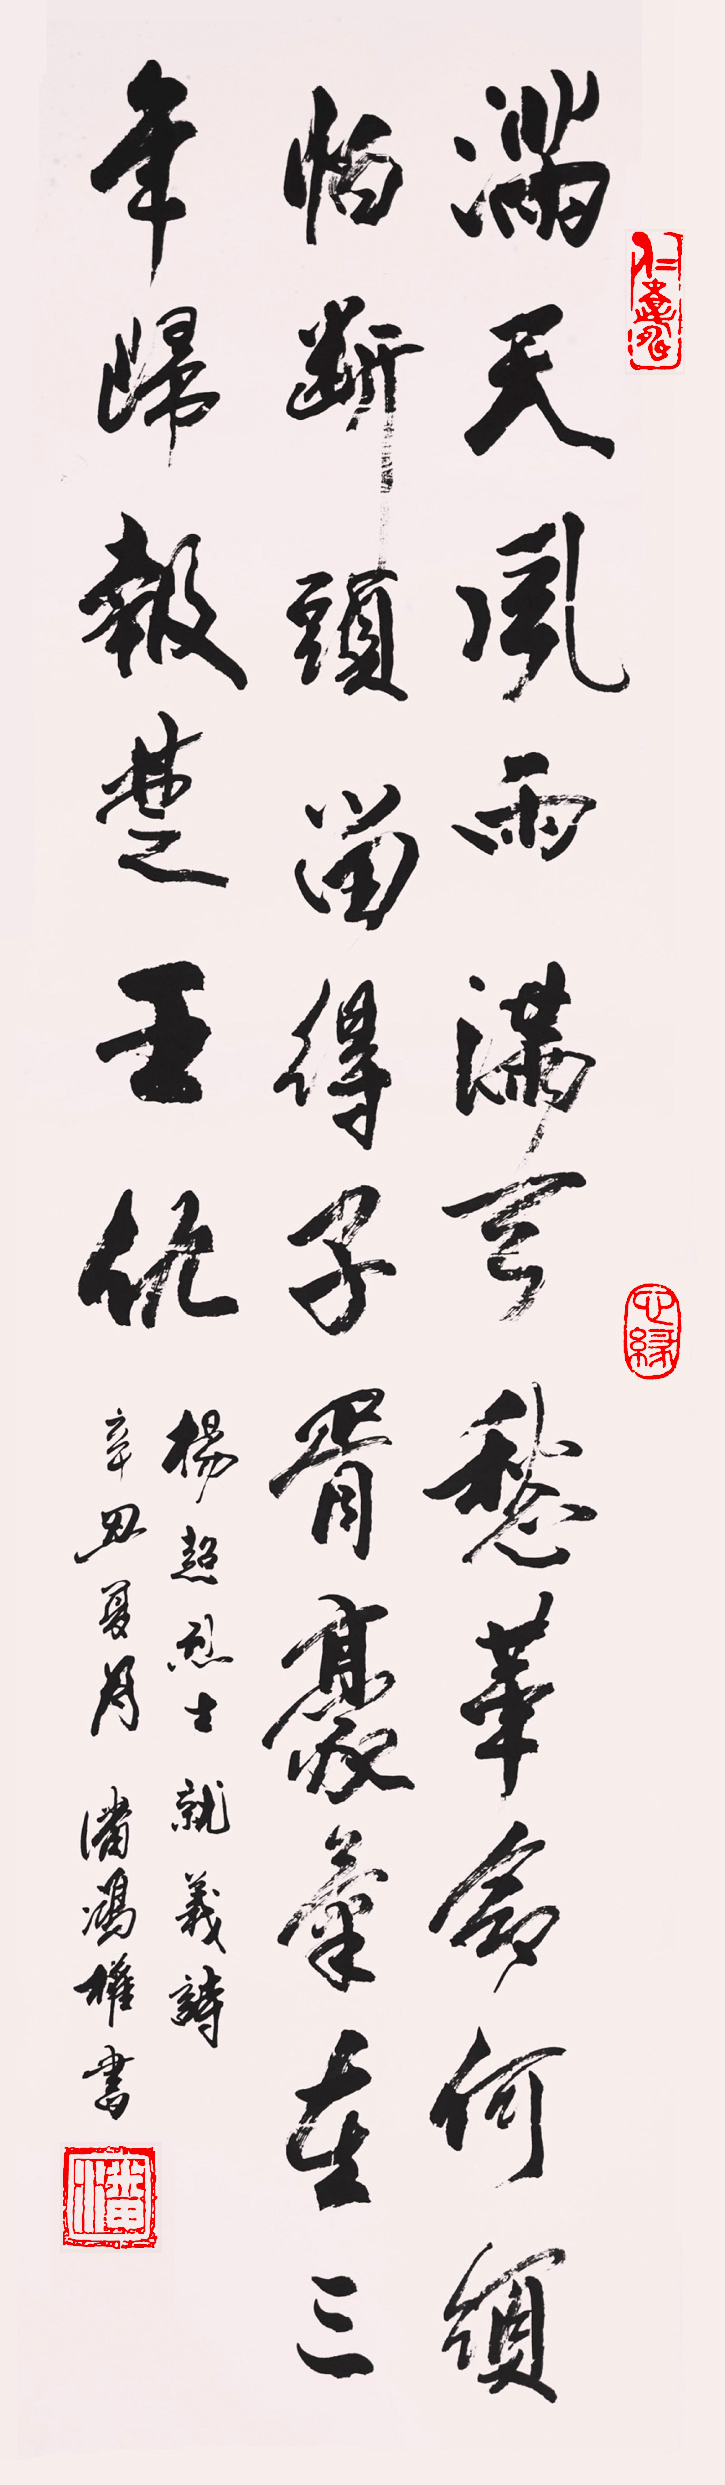 仁者壽
滿天風雨滿天愁革命何須
怕斷頭留得子胥豪氣在三
年歸報楚王仇
楊超烈士就義詩
辛丑夏月 潘鴻權書
潘